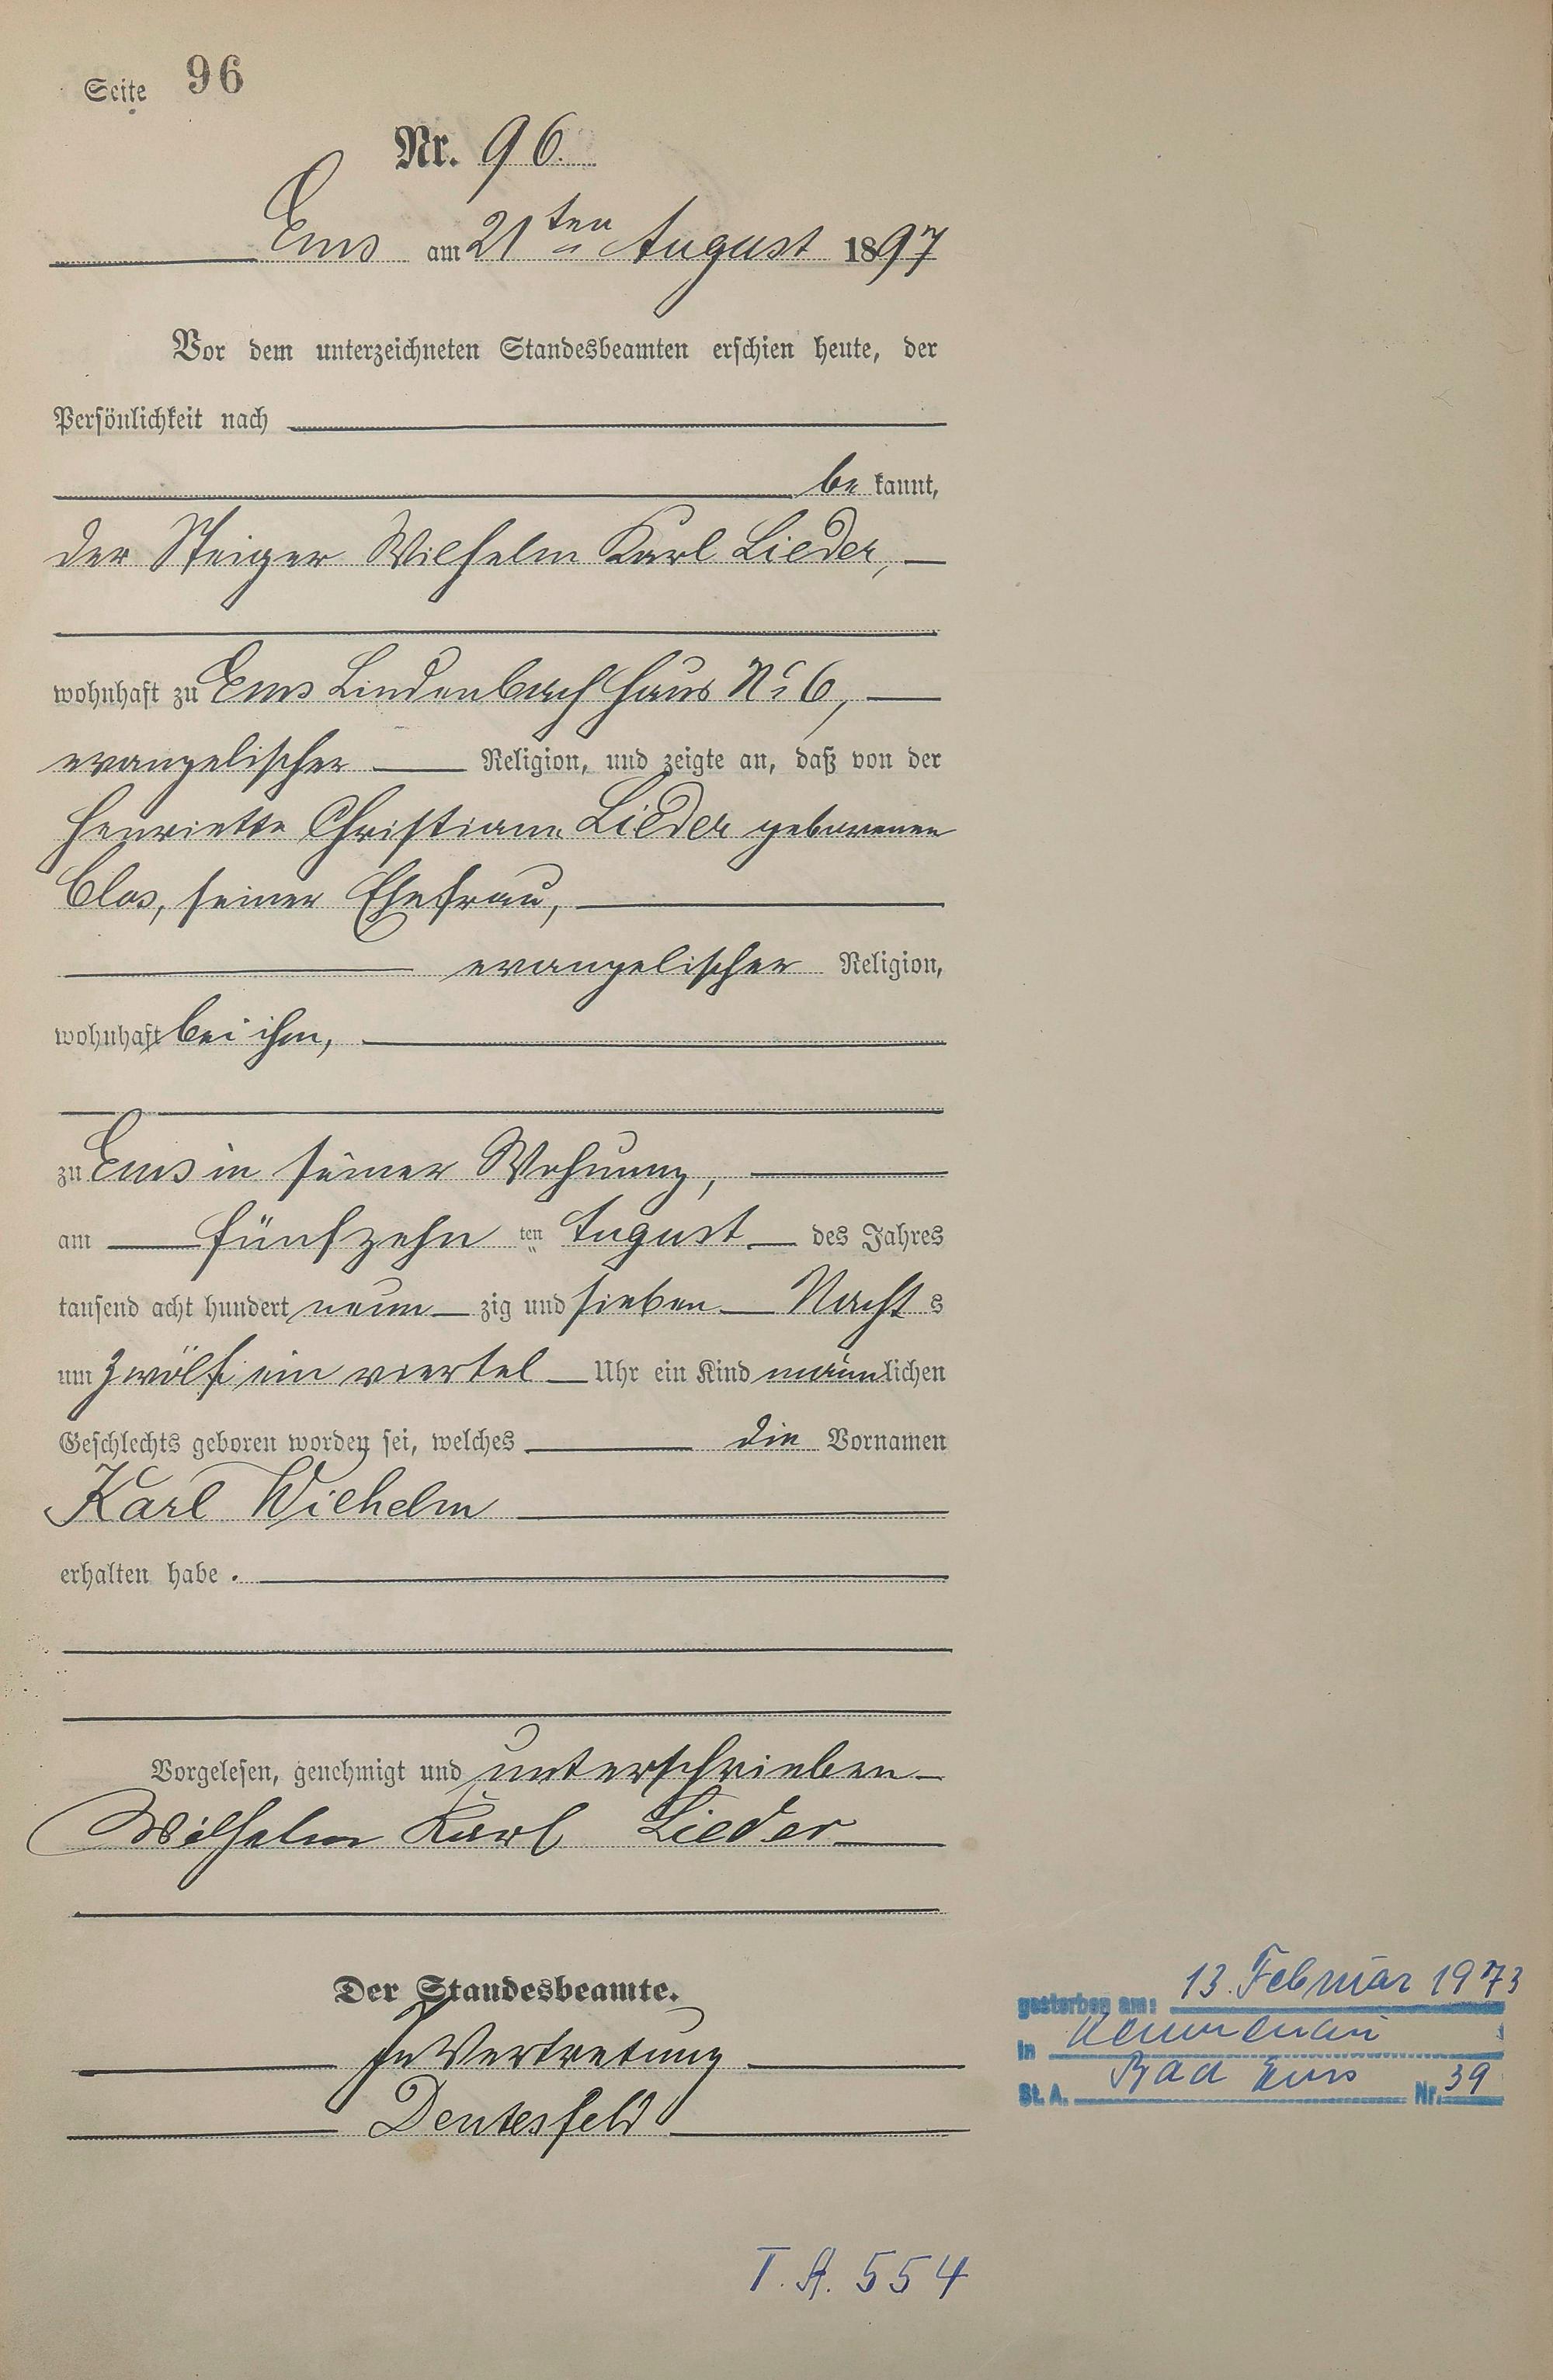 Seite 96
Nr. 96.
Ems am 21ten August 1897
Vor dem unterzeichneten Standesbeamten erschien heute, der
Persönlichkeit nach
be kannt,
der Steiger Wilhelm Karl Lieder,
wohnhaft zu Ems Lindenbach Haus No 6,
evangelischer Religion, und zeigte an, daß von der
Henriette Christiane Lieder geborenen
Clos, seiner Ehefrau,
evangelischer Religion,
wohnhaft bei ihm,
zu Ems in seiner Wohnung,
am fünfzehn ten August des Jahres
tausend acht hundert neun zig und sieben Nacht s
um zwölf ein viertel Uhr ein Kind männlichen
Geschlechts geboren worden sei, welches die Vornamen
Karl Wilhelm
erhalten habe.
Vorgelesen, genehmigt und unterschrieben
Wilhelm Karl Lieder
Der Standesbeamte.
In Vertretung
Dentesfeld
gestorben am: 13. Februar 1973
in Kemmenau
St. A. Bad Ems Nr. 39
T. A. 554